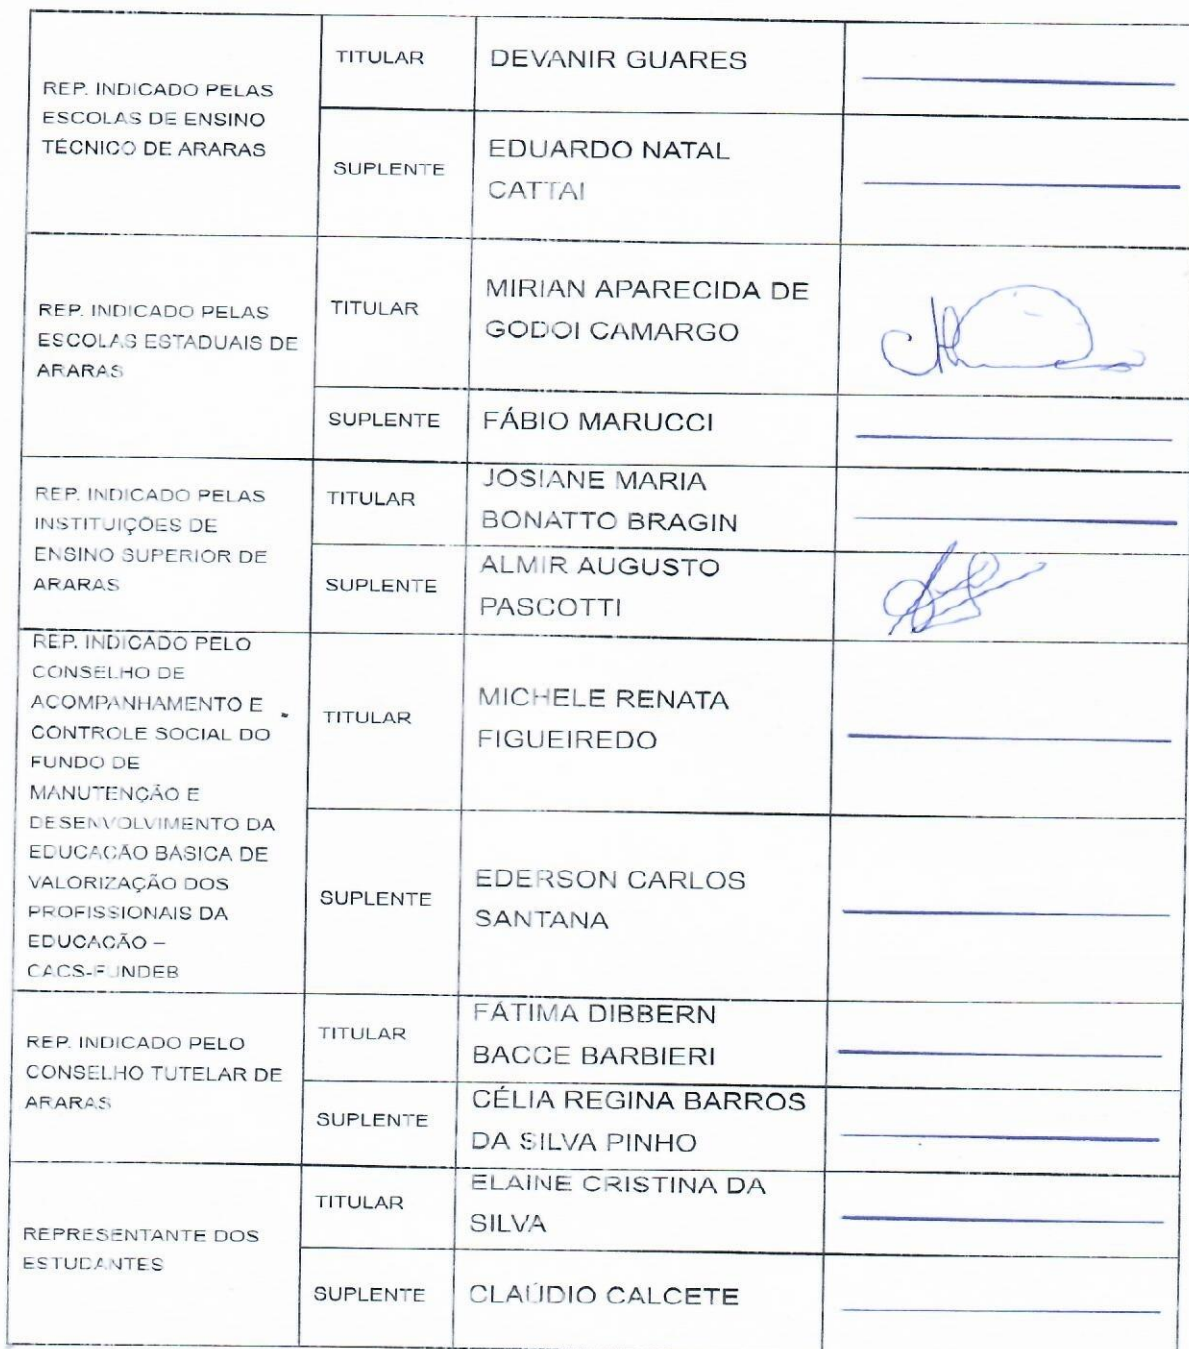 REP. INDICADO PELAS
ESCOLAS DE ENSINO
TÉCNICO DE ARARAS
TITULAR
DEVANIR GUARES
SUPLENTE
EDUARDO NATAL
CATTAI
REP. INDICADO PELAS
ESCOLAS ESTADUAIS DE
ARARAS
TITULAR
MIRIAN APARECIDA DE
GODOI CAMARGO
SUPLENTE
FÁBIO MARUCCI
REP. INDICADO PELAS
INSTITUIÇÕES DE
ENSINO SUPERIOR DE
ARARAS
TITULAR
JOSIANE MARIA
BONATTO BRAGIN
SUPLENTE
ALMIR AUGUSTO
PASCOTTI
REP. INDICADO PELO
CONSELHO DE
ACOMPANHAMENTO E
CONTROLE SOCIAL DO
FUNDO DE
MANUTENÇÃO E
DESENVOLVIMENTO DA
EDUCAÇÃO BASICA DE
VALORIZAÇÃO DOS
PROFISSIONAIS DA
EDUCAÇÃO –
CACS-FUNDEB
TITULAR
MICHELE RENATA
FIGUEIREDO
SUPLENTE
EDERSON CARLOS
SANTANA
REP. INDICADO PELO
CONSELHO TUTELAR DE
ARARAS
TITULAR
FÁTIMA DIBBERN
BACCE BARBIERI
SUPLENTE
CÉLIA REGINA BARROS
DA SILVA PINHO
REPRESENTANTE DOS
ESTUDANTES
TITULAR
ELAINE CRISTINA DA
SILVA
SUPLENTE
CLAÚDIO CALCETE